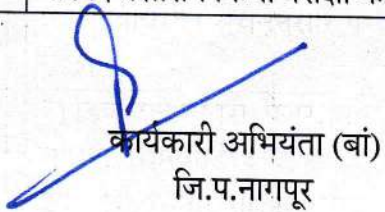 कार्यकारी अभियंता (बां)
जि.प.नागपूर